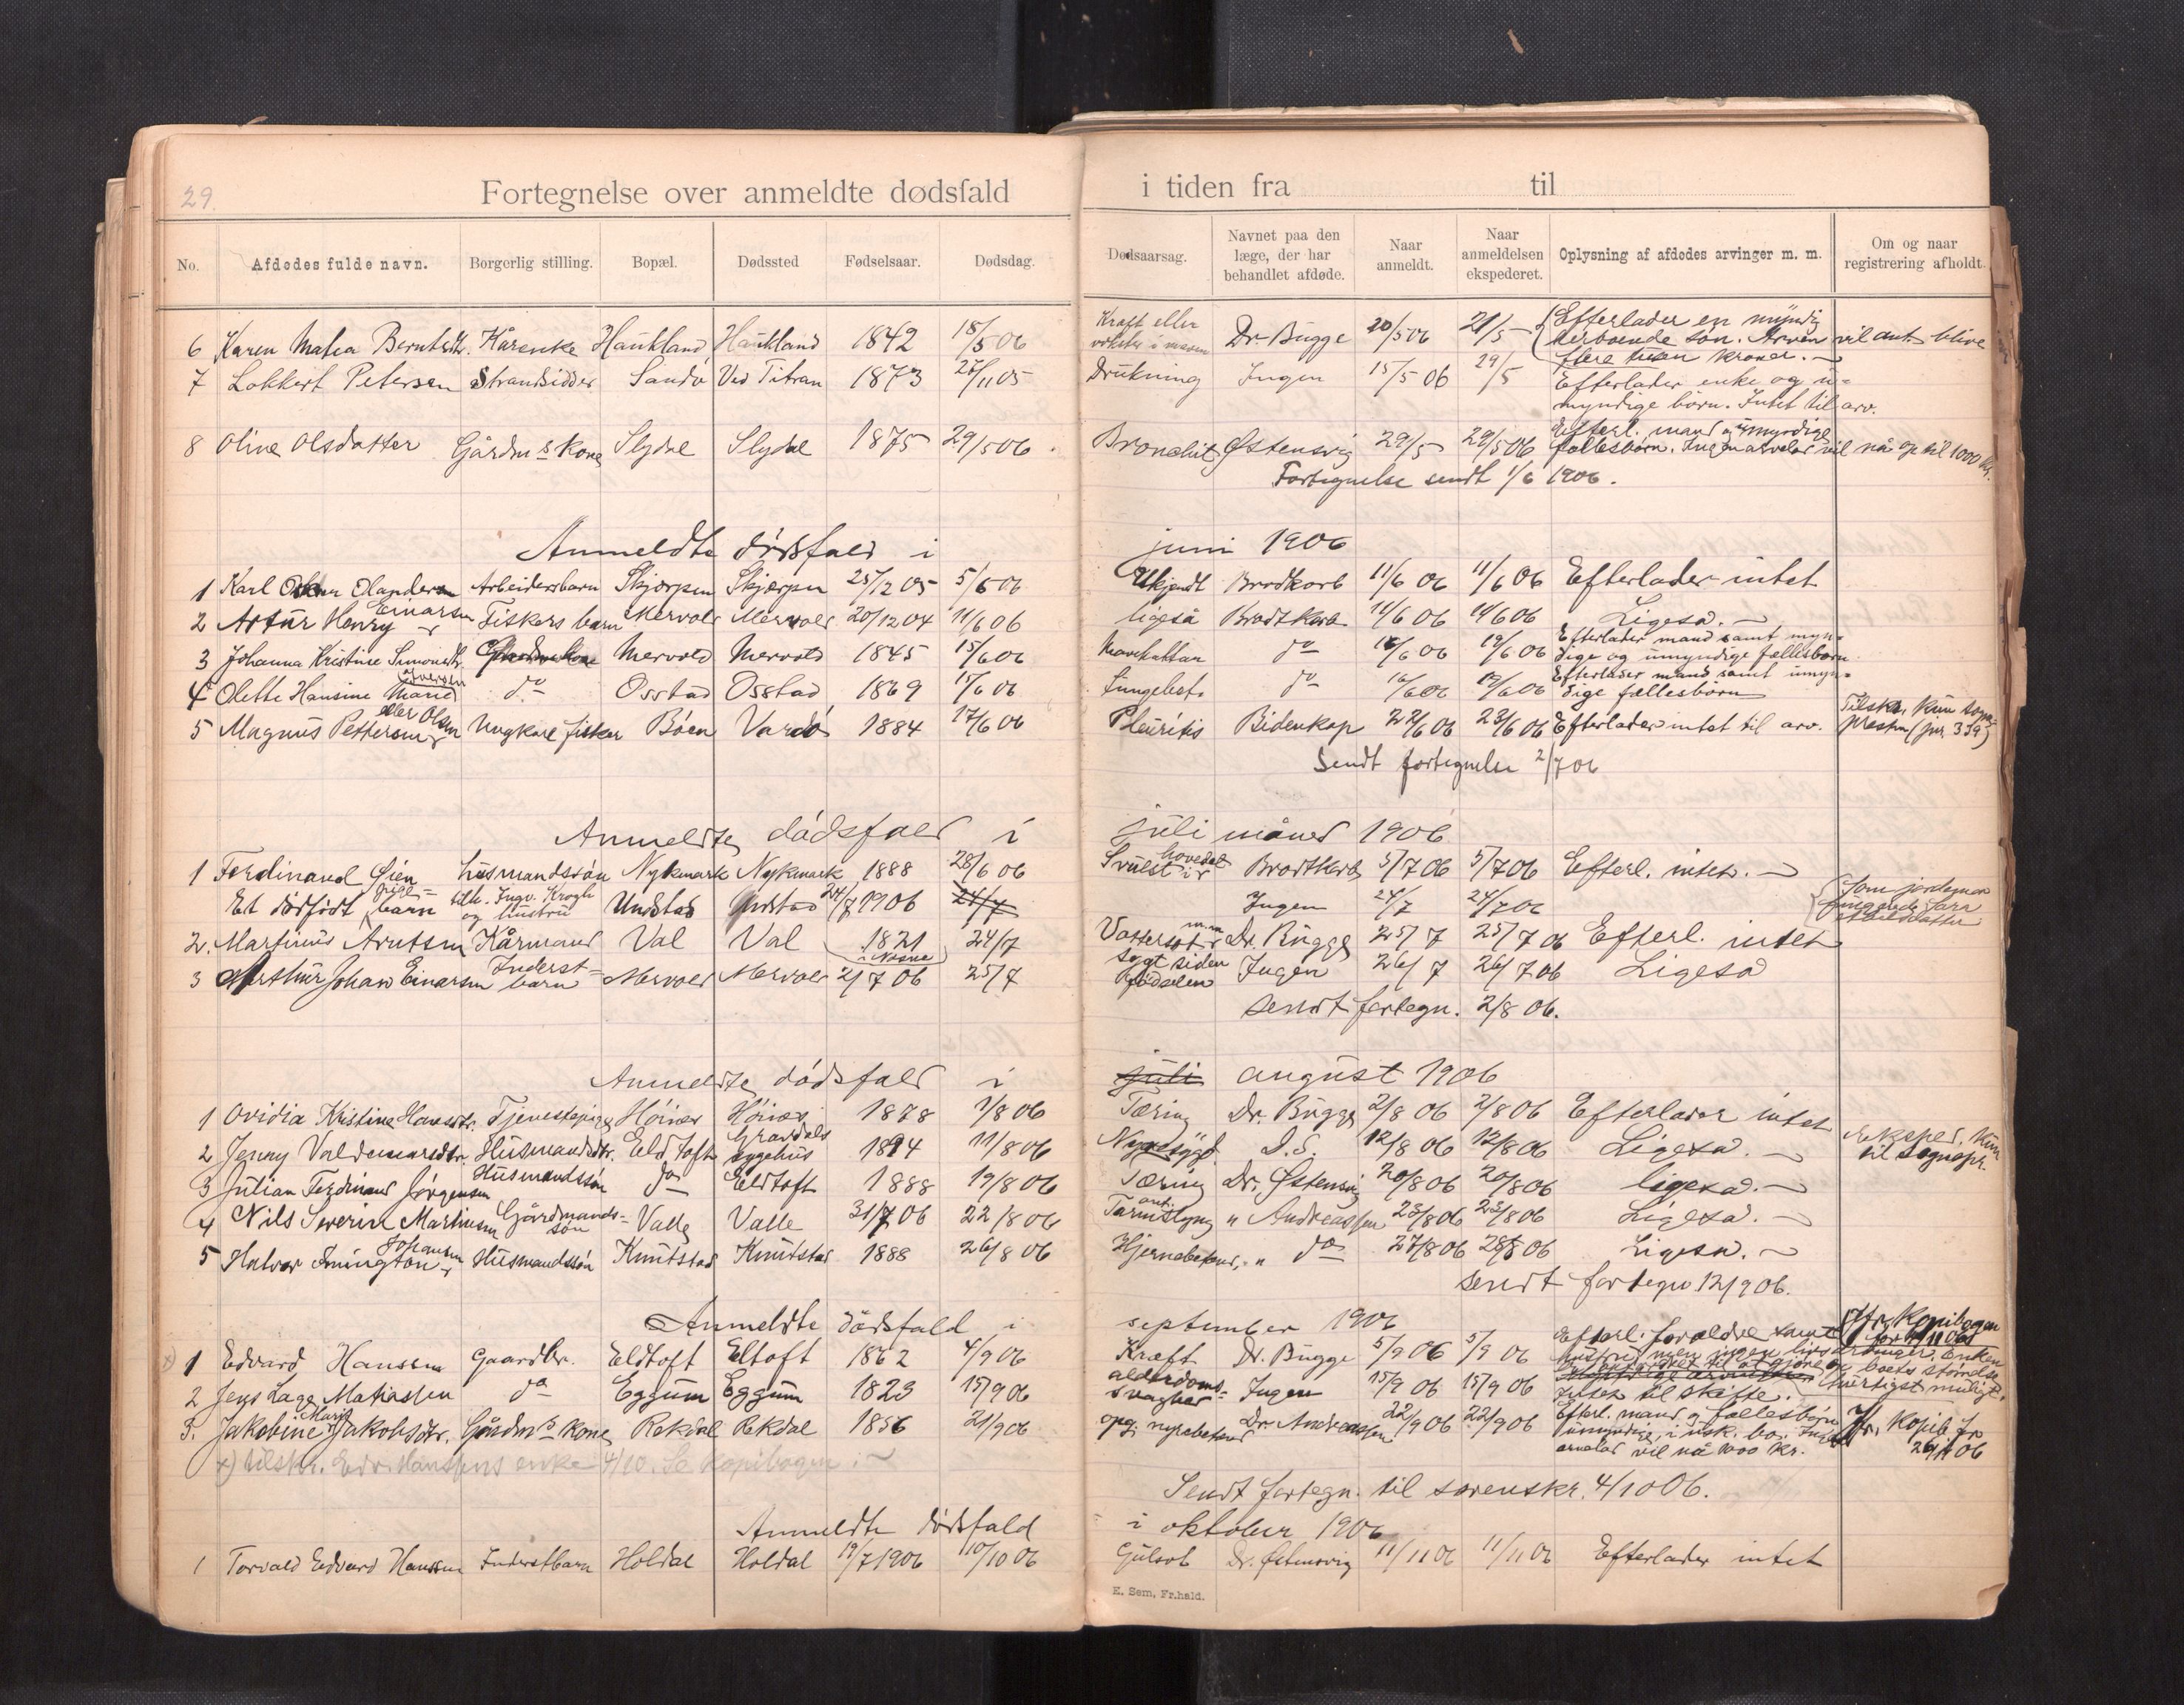 29.
Fortegnelse over anmeldte dødsfald i tiden fra til
No. Afdødes fulde navn. Borgerlig stilling. Bopæl. Dødssted Fødselsaar. Dødsdag. Dødsaarsag. Navnet paa den læge, der har behandlet afdøde. Naar anmeldt. Naar anmeldelsen ekspederet. Oplysning af afdødes arvinger m. m. Om og naar registrering afholdt.
6 Karen Maria Berntsdtr. Kårenke Haukland Haukland 1842 18/5 06 Kræft eller i maven Dr Bugge 20/5 06 21/5 Efterlader en myndig herboende søn. Arven vil ant. blive flere tusen kroner.
7 Lokkert Petersen Strandsidder Sandø Ved Titran 1873 11 05 Drukning Ingen 15/5 06 29/5 Efterlader enke og umyndige børn. Intet til arv.
8 Oline Olsdatter Gårdms kone Slydal Slydal 1875 29/5 06. Bronchit Østensvig 29/5 29/5 06 Efterl. mand og umyndige fællesbørn. Ingen arvelod vil nå op til 1000 kr.
Fortegnelse sendt 1/6 1906.
Anmeldte dødsfald i juni 1906
1 Karl Olandersen Arbeidersbarn Skjærpen Skjærpen 25/12 05 5/6 06 Ukjendt Brodtkorb 11/6 06 11/6 06 Efterlader intet
2 Artur Henry Einarsen Fiskers barn Mervold Mervold 20/12 04 11/6 06 ligeså Brodtkorb 11/6 06 11/6 06 Ligeså.
3 Johanna Kristine Simonsdtr. Mervold Mervold 1845 15/6 06 Mavekatar do 16/6 06 19/6 06 Efterlader mand samt myndige og umyndige fællesbørn
4 Olette Hansine Marie Iversen do Osstad Osstad 1869 15/6 06 Lungebet. do 16/6 06 19/6 06 Efterlader mand samt umyndige fællesbørn
5 Magnus Pettersen eller Olsen Ungkarl fisker Bøen Vardö 1884 17/6 06 Pleuritis Bidenkap 22/6 06 23/6 06 Efterlader intet til arv. Tilskr. kun sognepresten (jnr. 359)
Sendt fortegnelse 2/7 06
Anmeldte dødsfald i juli måned 1906
1 Ferdinand Øien husmandssøn Nykmark Nykmark 1888 28/6 06 Svulst i hovedet Brodtkorb 5/7 06 5/7 06 Efterl. intet.
Et dødfødt pigebarn tilh. Ingv. Krogh og hustru Undstad Undstad 24/7 1906 24/7 Ingen 24/7 24/7 06 Som jordemor fungerede Sara
2. Martinus Arntsen Kårmand Val Val 1821 i Nesne 24/7 Vattersot m.m. Dr. Bugge 25/7 25/7 06 Efterl. intet
3 Arthur Johan Einarsen Inderstbarn Mervold Mervold 2/7 06 25/7 Sygt siden fødselen Ingen 26/7 26/7 06 Ligeså
Sendt fortegn. 2/8 06.
Anmeldte dødsfald i juli august 1906
1 Ovidia Kristine Hansdtr. Tjenestepige Höinæs Höinæs 1878 1/8 06 Tæring Dr. Bugge 2/8 06 2/8 06 Efterlader intet
2 Jenny Valdemarsdtr. Husmandsdtr. Eldtoft Gravdals sygehus 1894 11/8 06 D.S. 12/8 06 12/8 06 Ligeså. Eksped. kun til sognepr.
3 Julian Ferdinand Jörgensen Husmandssön do Eldtoft 1888 19/8 06 Tæring Dr. Østensvig 20/8 06 20/8 06 ligeså.
4 Nils Severin Martinsen Gårdmandssön Valle Valle 31/7 06 22/8 06 ant. Tarmslyng " Andreassen 23/8 06 23/8 06 Ligeså.
5 Halvor Amington Johansen Husmandssön Knutstad Knutstad 1888 26/8 06 Hjernebetænd. " do 27/8 06 28/8 06 Ligeså.
Sendt fortegn 12/9 06.
Anmeldte dødsfald i september 1906
1 Edvard Hanssen Gaardbr. Eldtoft Eltoft 1862 4/9 06 Kræft Dr. Bugge 5/9 06 5/9 06 Efterl. forældre samt hustru men ingen livsarvinger. Enken boets störrelse hurtigst muligt. Jfr. Kopibogen
2 Jens Lage Matiassen do Eggum Eggum 1823 15/9 06 alderdomssvaghed Ingen 15/9 06 15/9 06 til skifte.
3. Jakobine Marie Jakobsdtr. Gårdms kone Rekdal Rekdal 1856 21/9 06 nyrebetænd Dr. Andreassen 22/9 06 22/9 06 Efterl. mand og fællesbörn umyndige, i usk. bo. Ingen arvelod vil nå 1000 kr. Jfr. Kopib. fr
x) tilskr. Edv. Hanssens enke 4/10. Se kopibogen.
Sendt fortegn. til sorenskr. 4/10 06.
Anmeldte dødsfald i oktober 1906
1 Torvald Edvard Hanssen Inderstbarn Holdal Holdal 19/7 1906 10/10 06 Gulsot Dr. Østensvig 11/11 06 11/11 06 Efterlader intet
E. Sem, Fr.hald.